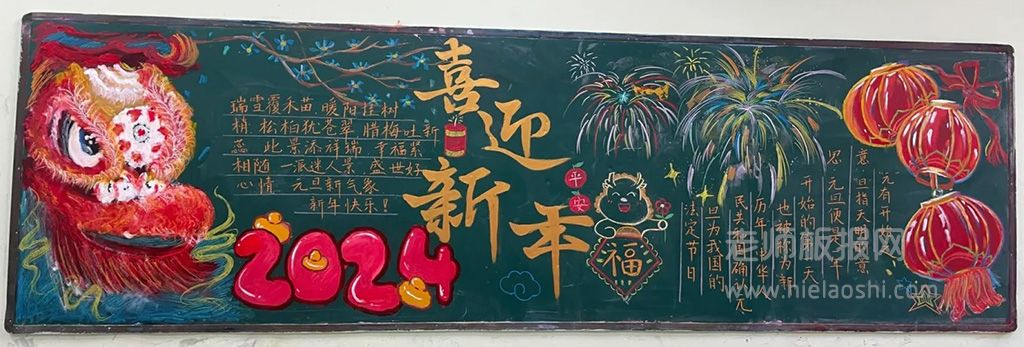 瑞雪覆木苗 暖阳挂树
梢 松柏犹苍翠 腊梅吐新
蕊 此景添祥瑞 幸福紧
相随 一派迷人景 盛世好
心情 元旦新气象
新年快乐！
喜迎
新年
2024
平安
福
"元有开始"之
意 旦指天明 意
思 元旦便是一年
开始的第一天
也被称为新
历年 中华
民 确 元
旦为我国的
法定节日
老师板报网
www.hielaoshi.com